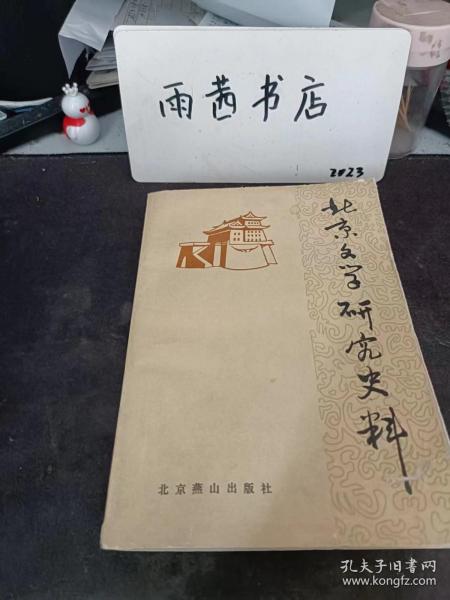 雨茜书店
2023
北京文学研究史料
北京燕山出版社
孔夫子旧书网
www.kongfz.com